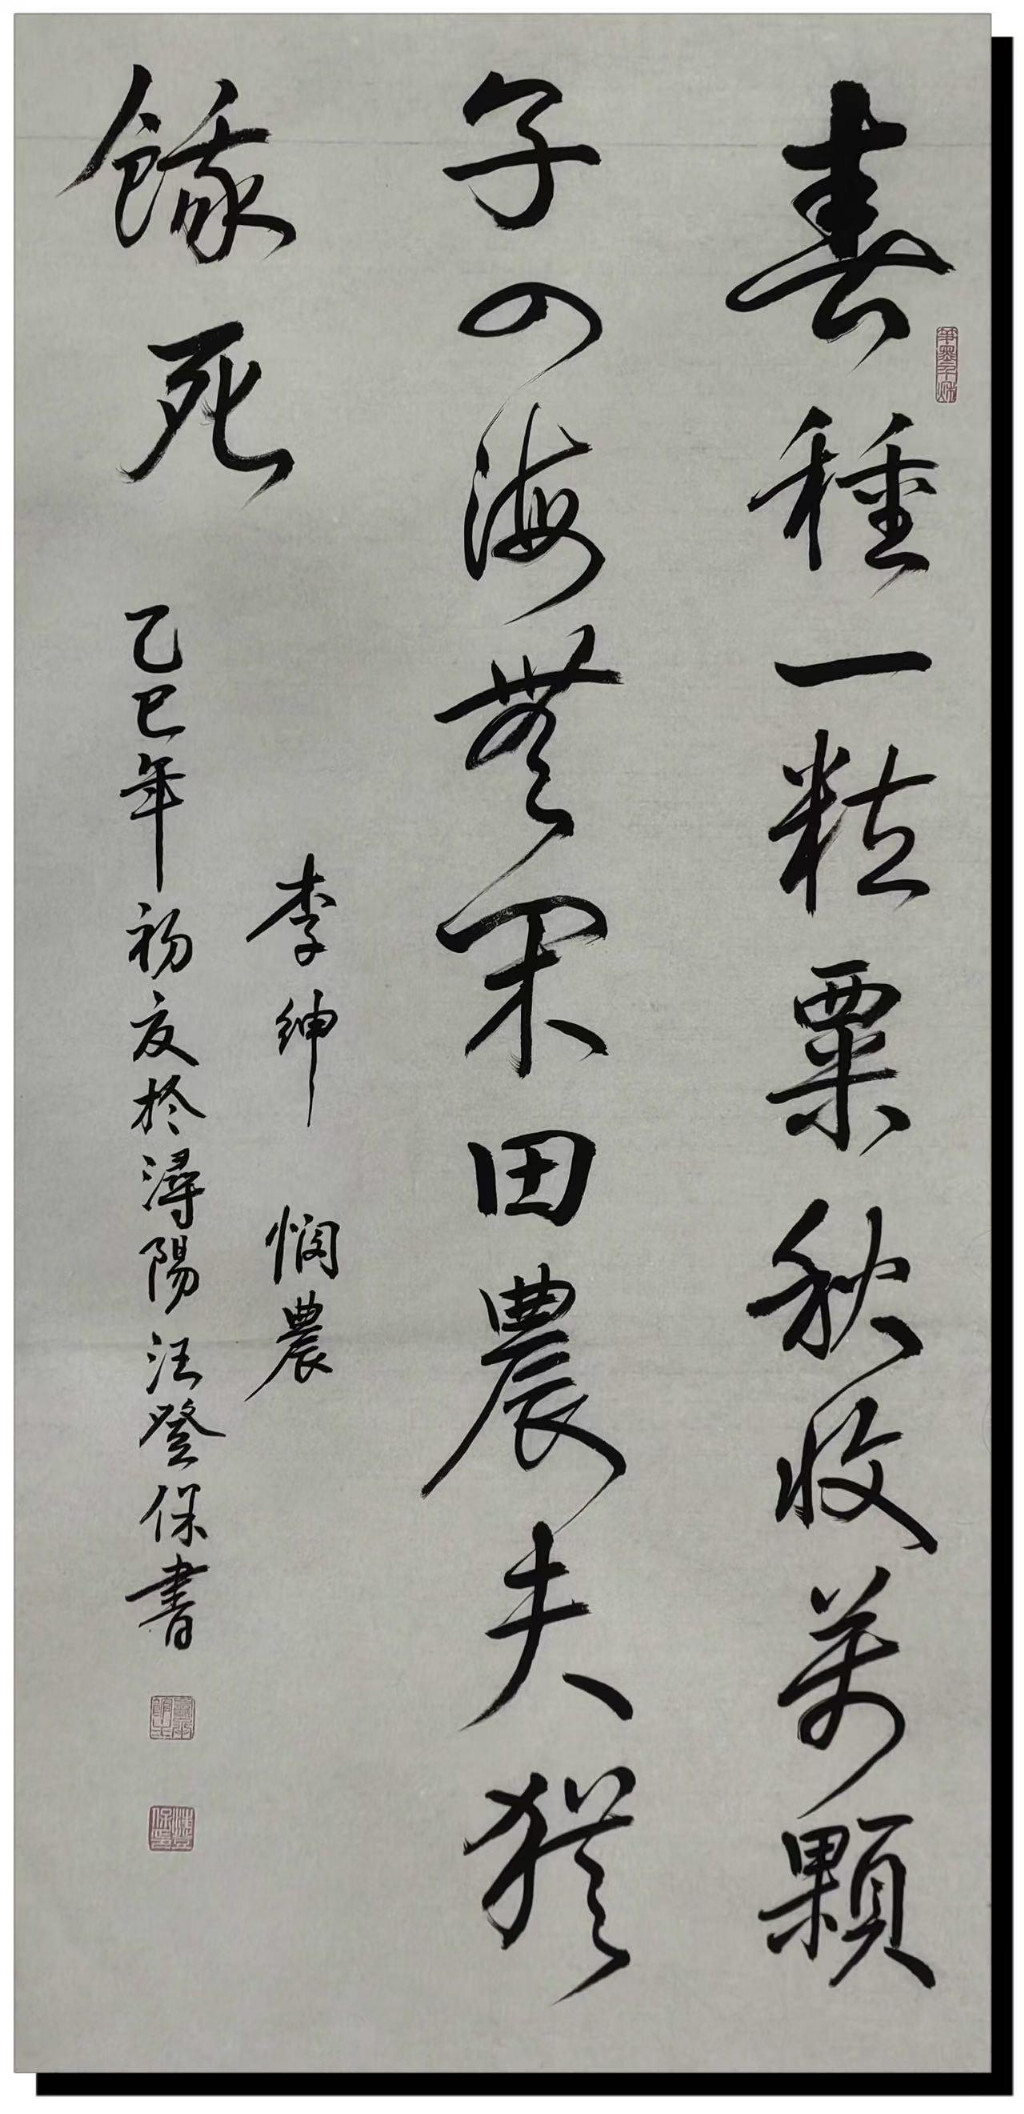 春種一粒粟秋收萬顆
子四海無閑田農夫猶
餓死
李紳 憫農
乙巳年初夏於潯陽汪登保書